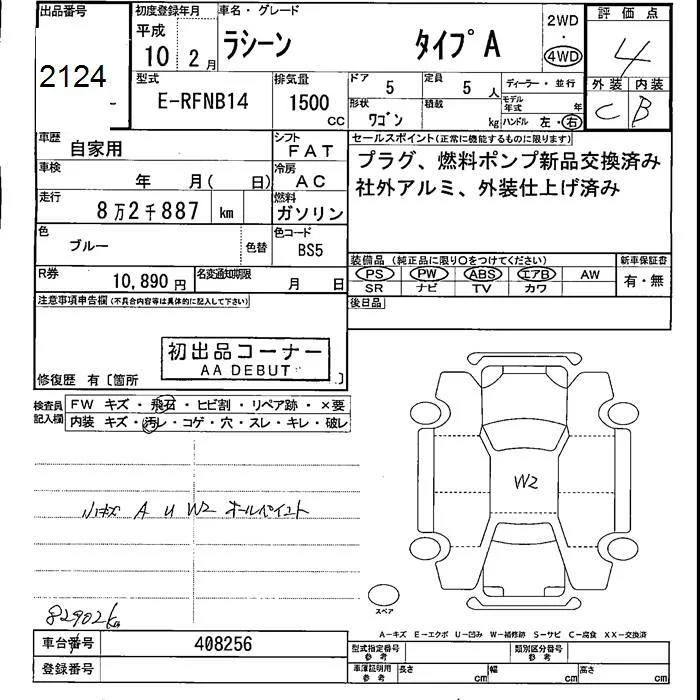 出品番号
2124
初度登録年月
平成
10 2月
車名・グレード
ラシーン タイプA
2WD
・
4WD
評価点
4
外装 内装
C B
型式
E-RFNB14
排気量
1500
CC
ドア
5
定員
5 人
ディーラー・並行
形状
ワゴン
積載
kg
モデル年式 年
ハンドル 左・右
車歴
自家用
シフト
FAT
車検
年 月( 日)
冷房
AC
走行
8万2千887 km
燃料
ガソリン
色
ブルー
色替
色コード
BS5
R券
10,890円
名変通知期限
月 日
セールスポイント(正常に機能するものに限ります)
プラグ、燃料ポンプ新品交換済み
社外アルミ、外装仕上げ済み
装備品(純正品に限り○をつけてください)
PS PW ABS エアB AW
SR ナビ TV カワ
新車保証書
有・無
後日品
注意事項申告欄(不具合内容等は具体的に記入して下さい)
初出品コーナー
AA DEBUT
修復歴 有〔箇所 〕
検査員記入欄
FW キズ・飛石・ヒビ割・リペア跡・×要
内装 キズ・汚レ・コゲ・穴・スレ・キレ・破レ
小キズ A U W2 オールペイント
82902km
W2
スペア
A-キズ E-エクボ U-凹み W-補修跡 S-サビ C-腐食 XX-交換済
車台番号
408256
登録番号
型式指定番号
参考
類別区分番号
参考
車庫証明用
参考
長さ cm
幅 cm
高さ cm